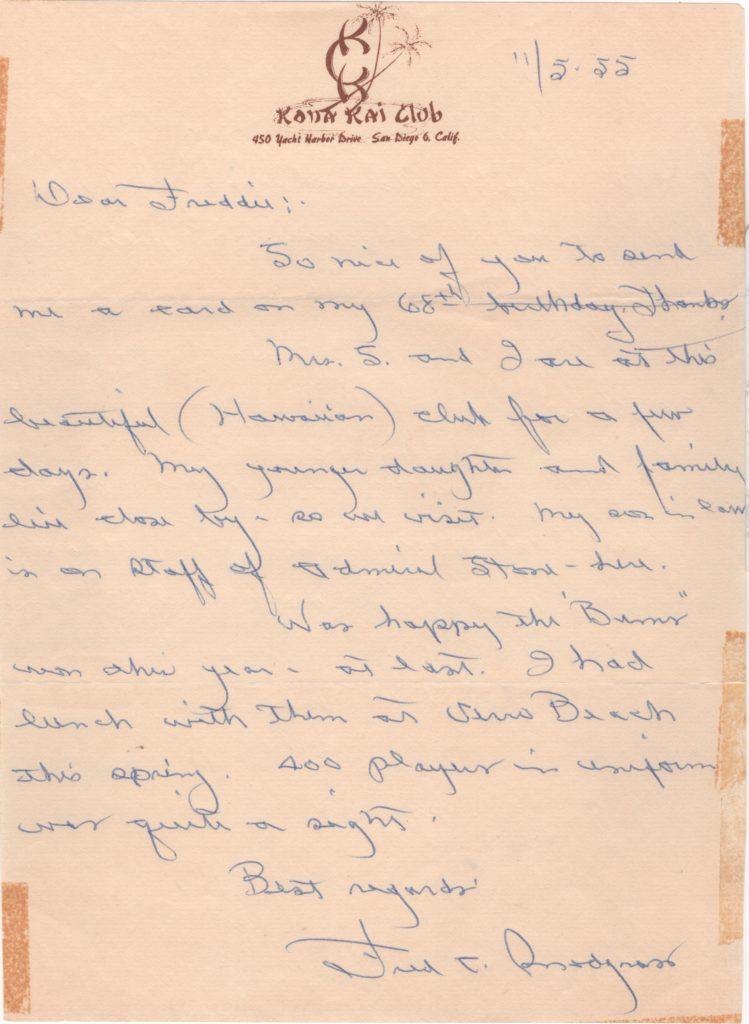 KK
Kona Kai Club
450 Yacht Harbor Drive San Diego 6, Calif.
11/5-55
Dear Freddie;-
So nice of you to send
me a card on my 68th birthday. Thanks.
Mrs. S. and I are at this
beautiful (Hawaiian) club for a few
days. My younger daughter and family
live close by - so we visit. My son in law
is on staff of Admiral Stone - here.
Was happy the "Bums"
won this year - at last. I had
lunch with them at Vero Beach
this spring. 400 players in uniform
was quite a sight.
Best regards
Fred C. Snodgrass